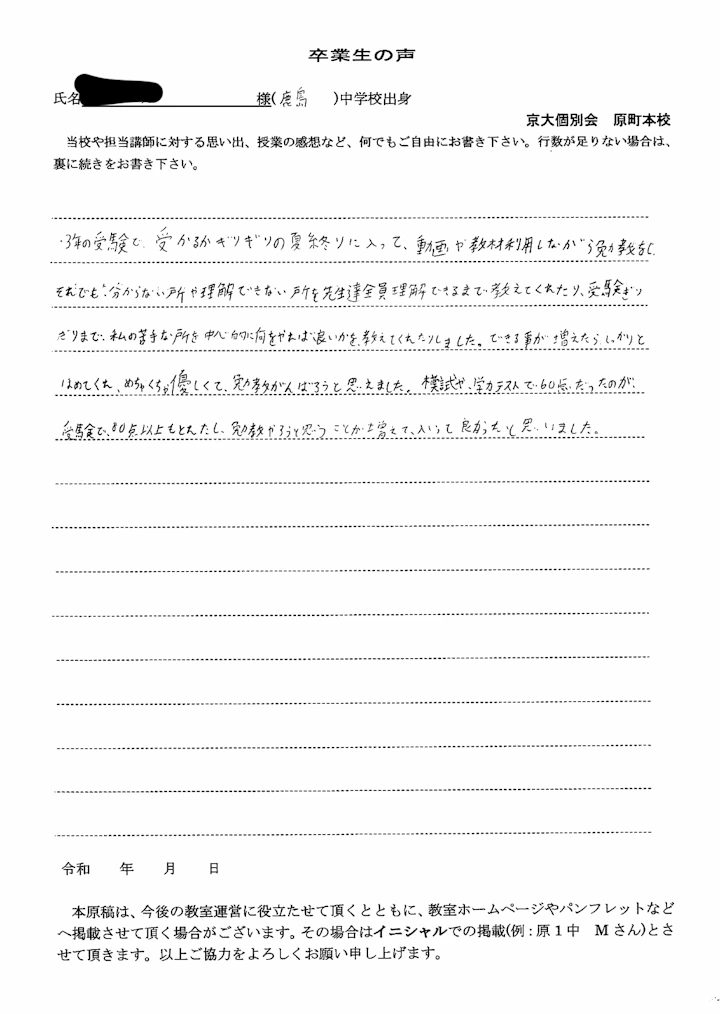 卒業生の声
氏名 様(鹿島 )中学校出身
京大個別会 原町本校
当校や担当講師に対する思い出、授業の感想など、何でもご自由にお書き下さい。行数が足りない場合は、
裏に続きをお書き下さい。
3年の受験で、受かるかギリギリの夏終りに入って、動画や教材利用しながら勉教をし
それでも分からない所や理解できない所を先生達全員理解できるまで教えてくれたり、受験ぎり
ぎりまで、私の苦手な所を中心的に何をやれば良いかを教えてくれたりしました。できる事が増えたらしっかりと
ほめてくれ、めちゃくちゃ優しくて、勉教がんばろうと思えました。模試や、学力テストで60点だったのが、
受験で、80点以上もとれたし、勉教やろうと思うことが増えて、入いって良かったと思いました。
令和 年 月 日
本原稿は、今後の教室運営に役立たせて頂くとともに、教室ホームページやパンフレットなど
へ掲載させて頂く場合がございます。その場合はイニシャルでの掲載(例:原1中 Mさん)とさ
せて頂きます。以上ご協力をよろしくお願い申し上げます。